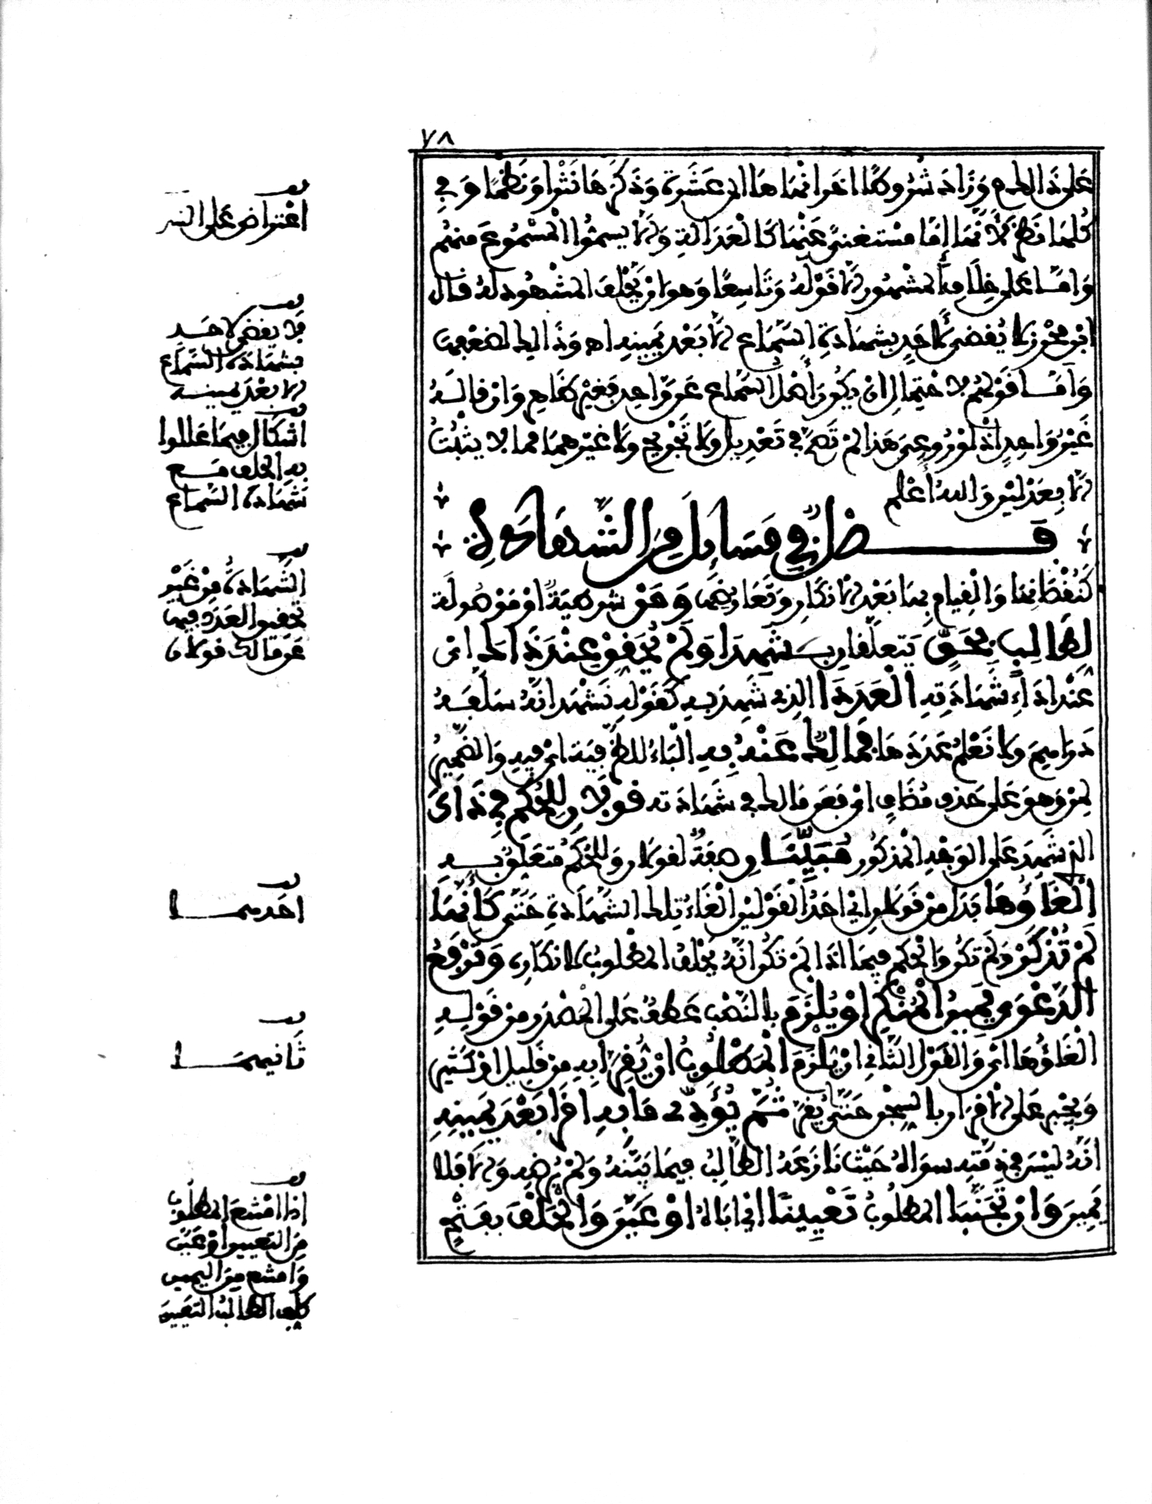 ٧٨
على ذالك وزاد شروطا اخرانهاها الى عشرة وذكرها نثرا ونظما وفي
كلما نظر لانها إما مستغنى عنها كالعدالة والا يسموا المسموع منهم
واما على خلاف المشهور لا قوله وتاسعا وهو ان يحلف المشهود له قال
ابن محرز لا يقضى لاحد بشهادة السماع الا بعد يمينه اه وذالك لضعفها
واما قولهم لاحتمال ان يكون أصل السماع عن واحد فغير ظاهر وان قاله
غير واحد اذ لو روعي هذا لم تصح في تعديل ولا تجريح ولا غيرهما مما لا يثبت
الا بعدلين والله أعلم
فصل في مسايل من الشهادة
كنقصانها والقيام بها بعد الانكار وتعارضها
لطالب بحق يتعلق شهدا ولم يحقق عند ذاك اي
عند اداء شهادته العدد الذي شهد به كقوله نشهد انه سلفه
دراهم ولا نعلم عددها فمالك عنه به الباء للظرفية اي فيه والضمير
لمن وهو على حذف مضاف اي فعن مالك في شهادته قولان وللحكم في ذاك
الذي شهد على الوجه المذكور مبينان صفة لقولان وللحكم متعلق به
الغاؤها بدل من قولان اي احد القولين الغاء تلك الشهادة حتى كأنها
لم تذكر ولم تكن والحكم فيها اذا لم تكن انه يحلف المطلوب لانكاره وترفع
الدعوى يمين المنكر او يلزم بالنصب عطف على المصدر من قوله
الغاؤها اي والقول الثاني ان يلزم المطلوب ان يقر به من قليل او كثير
ويجبر على الاقرار بالسجن حتى يقر ثم يؤدي ما به اقر بعد يمينه
انه ليس في ذمته سواه حيث نازعه الطالب فيما بينه ولم يرضه والا فلا
يمين وان تجنب المطلوب تعيينا اي اباه او عين والحلف
اعتراض على
لا يقضى لاحد
بشهادة السماع
الا بعد يمينه
اشكال فيما عللوا
به الحلف مع
شهادة السماع
الشهادة من غير
تحقيق العدد فيها
عن مالك قولان
احدهما
ثانيهما
إذا امتنع المطلوب
من التعيين او عين
وامتنع من اليمين
كلف الطالب التعيين